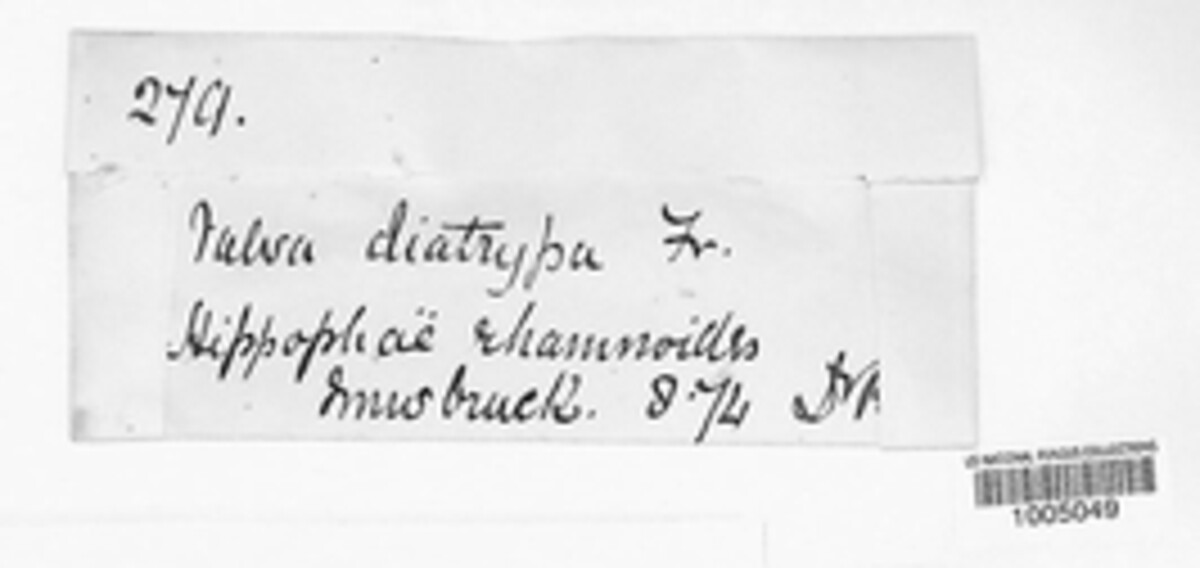 279.
Valsa diatrypa Fr.
Hippophaë rhamnoides
Innsbruck. 8.74
US NATIONAL FUNGUS COLLECTIONS
1005049